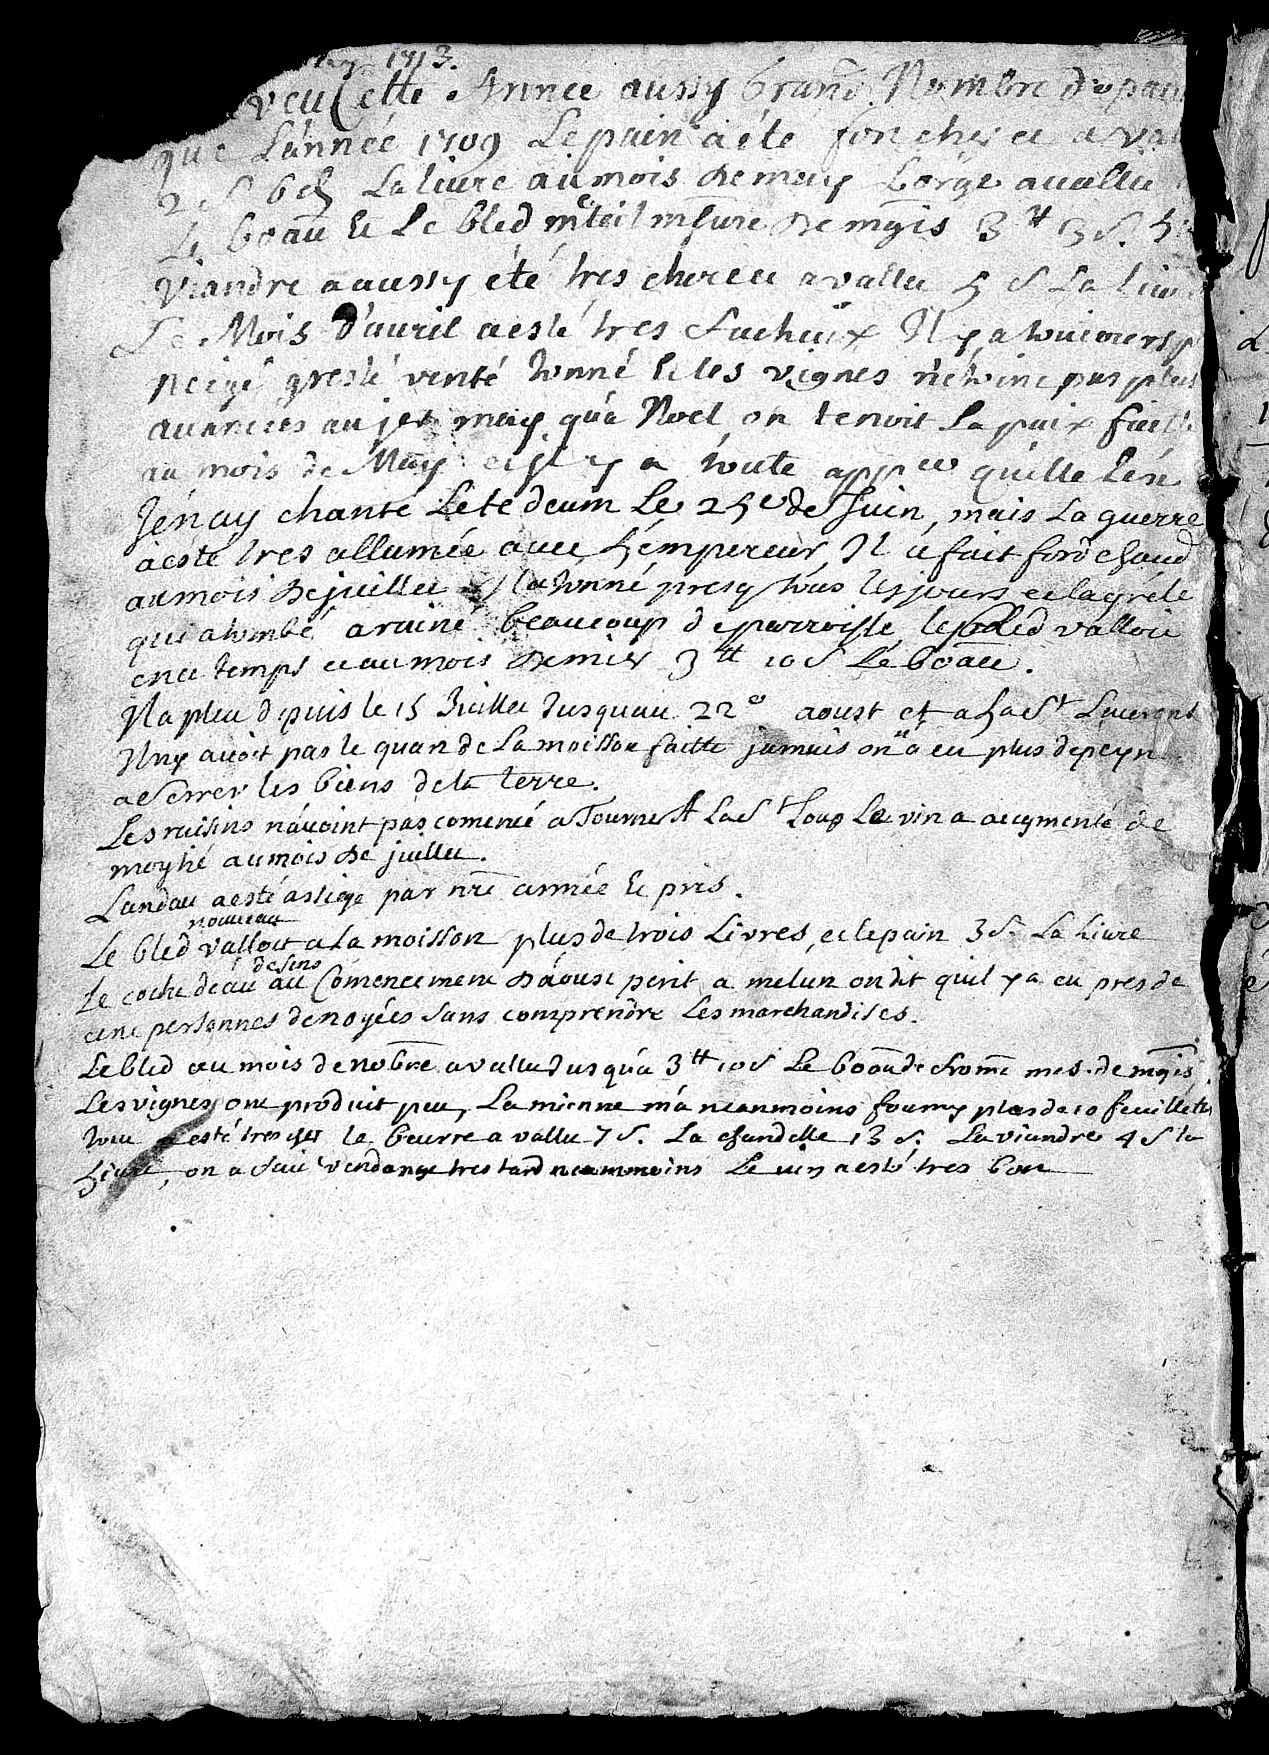 1713.
veu Cette Année aussy Grand Nombre de pau
que L'année 1709 Le pain a été fort cher et a val
2 s 6 d La livre au mois de may L'orge a vallu
Le boau et Le bled meteil mesure de 3 tt
viandre a aussy été tres chere et a vallu 5 s La livre
Le Mois d'avril a esté tres facheux Il y a toujours p
neigé greslé venté tonné et les vignes n'étoint pas plus
avancées au jer may qu'a Noel on tenoit La paix faitte
au mois de May et il y a toute appce qu'elle
J'en ay chanté Le te deum Le 25e de Juin, mais La guerre
a esté tres allumée avec L'empereur Il a fait fort chaud
au mois de juillet Il a tonné presq tous les jours et la gréle
qui a tombé a ruiné beaucoup de parroisse le bled valloit
en ce temps et au mois de mis 3 tt 10 s Le boau.
Il a pleu depuis le 15 Juillet Jusquau 22e aoust et a La St Laurens
Il ny avoit pas le quart de La moisson faitte jamais on n'a eu plus de peyn
a serrer les biens de la terre.
Les raisins n'avoint pas comencé a Tourner A La St Loup Le vin a augmenté de
moytié au mois de juillet.
Landau a esté assiegé par nre armée et pris.
nouveau
Le bled valloit a La moisson plus de trois Livres, et le pain 3 s. La Livre
de sens
Le coche d'eau au Comencement d'aoust perit a melun on dit quil y a eu pres de
cent personnes de noyées sans comprendre Les marchandises.
Le bled au mois de nobre a vallu Jusqu'a 3 tt 10 s Le boau de frome mes. de
Les vignes ont produit peu, La mienne m'a neanmoins fourny plus de 10 feuillettes
tout a esté tres cher le beurre a vallu 7 s. La chandelle 13 s. La viandre 4 s la
Livre, on a fait vendange tres tard neammoins Le vin a esté tres bon